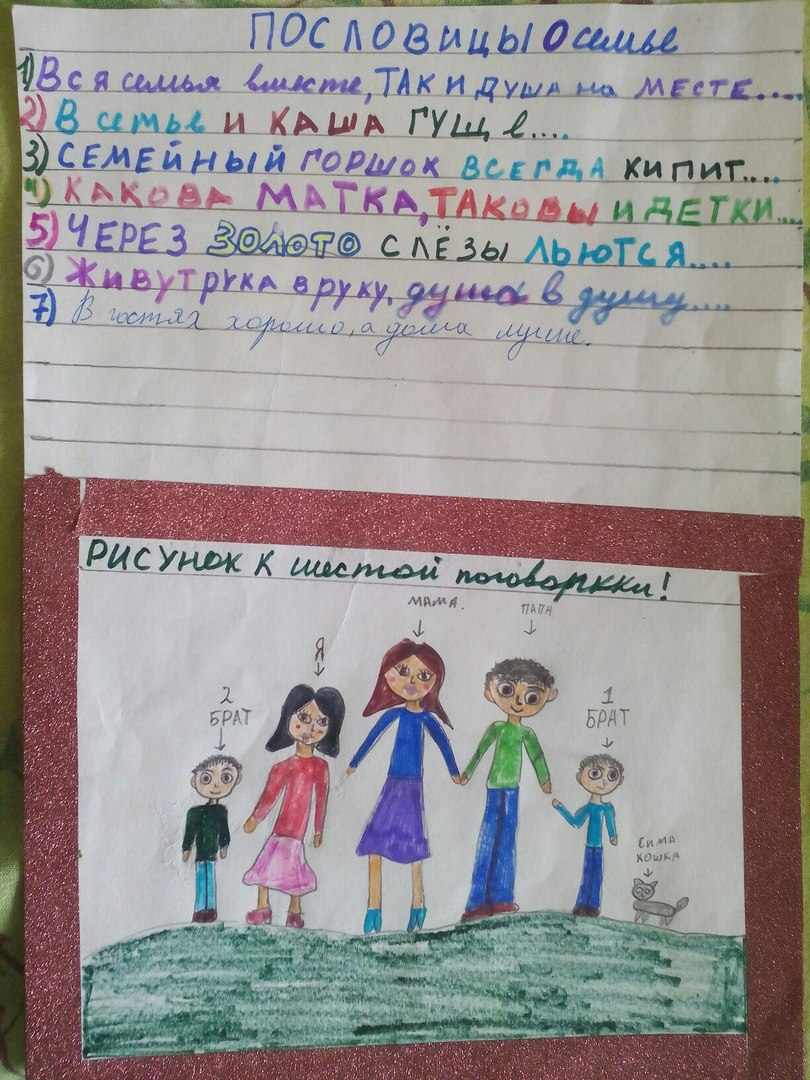 ПОСЛОВИЦЫ О семье
1) Вся семья вместе, ТАК И ДУША на МЕСТЕ....
2) В семье И КАША ГУЩЕ....
3) СЕМЕЙНЫЙ ГОРШОК ВСЕГДА КИПИТ....
4) КАКОВА МАТКА, ТАКОВЫ И ДЕТКИ....
5) ЧЕРЕЗ ЗОЛОТО СЛЁЗЫ ЛЬЮТСЯ....
6) ЖИВУТ РУКА В РУКУ, душа в душу....
7) В гостях хорошо, а дома лучше.
РИСУНОК К шестой поговоркки!
МАМА.
ПАПА
Я
2 БРАТ
1 БРАТ
СИМА
КОШКА